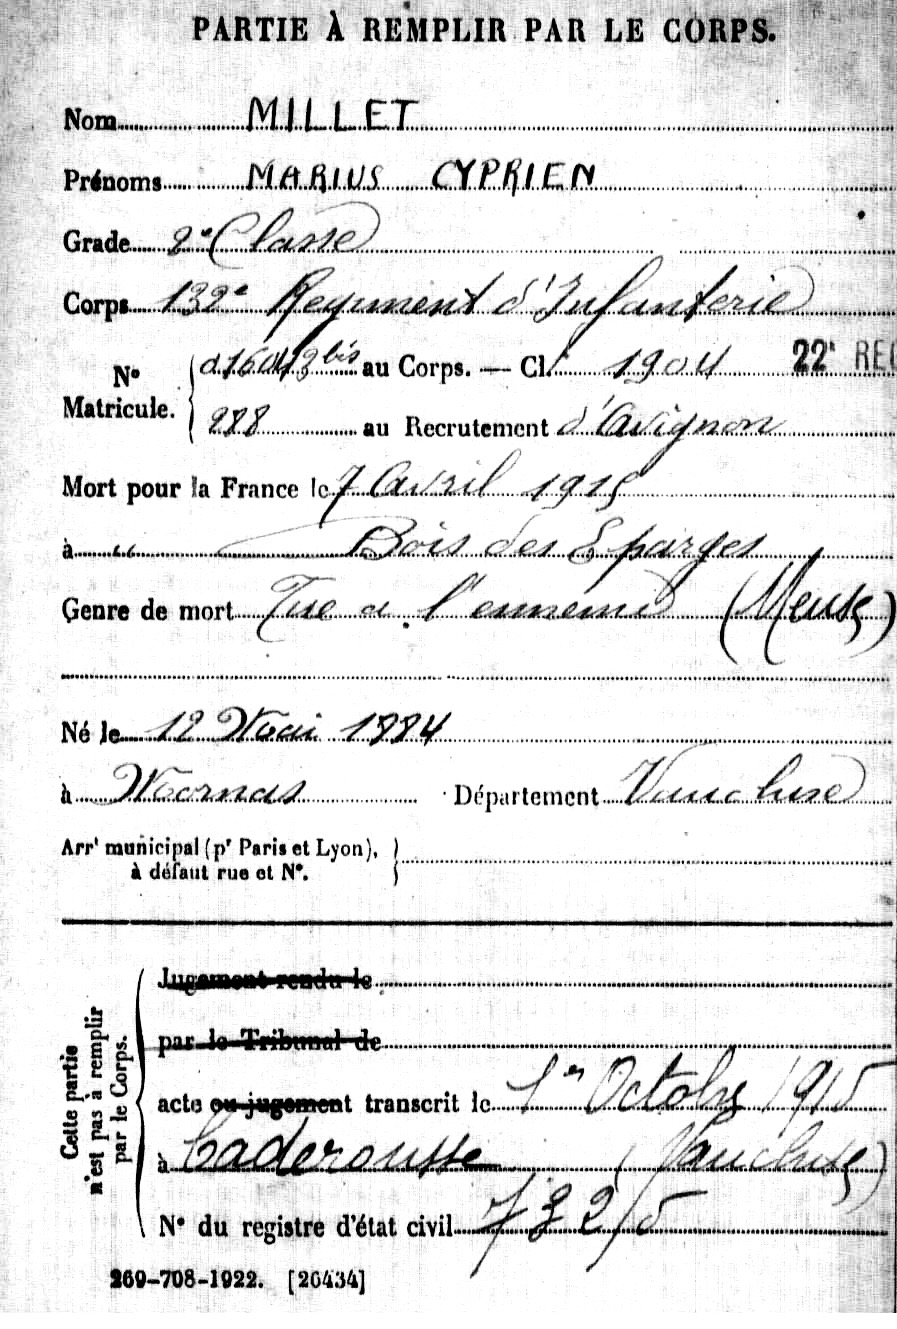 PARTIE À REMPLIR PAR LE CORPS.
Nom MILLET
Prénoms MARIUS CYPRIEN
Grade 2e Classe
Corps 132e Regiment d'Infanterie
No Matricule. 016043 bis au Corps. — Cl. 1904 22e REG
288 au Recrutement d'Avignon
Mort pour la France le 7 Avril 1915
à Bois des Eparges
Genre de mort Tué a l'ennemi (Meuse)
Né le 12 Mai 1884
à Mornas Département Vaucluse
Arrt municipal (pr Paris et Lyon),
à défaut rue et No.
Cette partie n'est pas à remplir par le Corps.
Jugement rendu le
par le Tribunal de
acte ou jugement transcrit le 1er Octobre 1915
à Caderousse (Vaucluse)
No du registre d'état civil
269-708-1922. [26434]